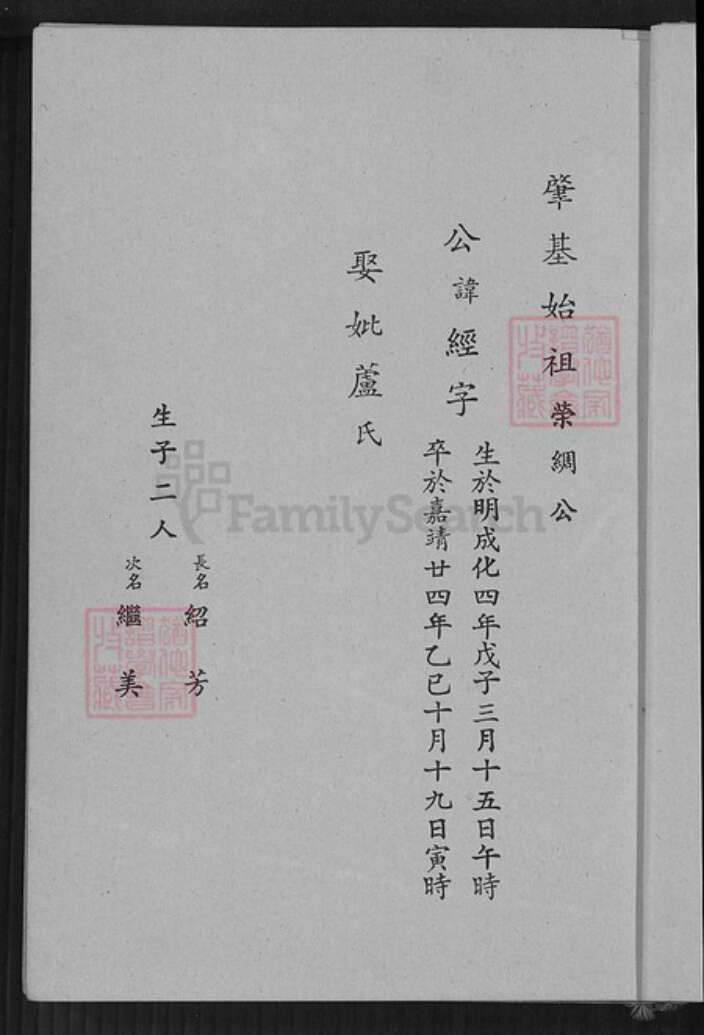 肇基始祖榮綢公
公諱經字
生於明成化四年戊子三月十五日午時
卒於嘉靖廿四年乙巳十月十九日寅時
娶妣蘆氏
生子二人
長名紹芳
次名繼美
FamilySearch